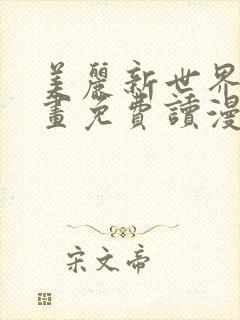 美麗新世界
畫免費讀漫
宋文帝